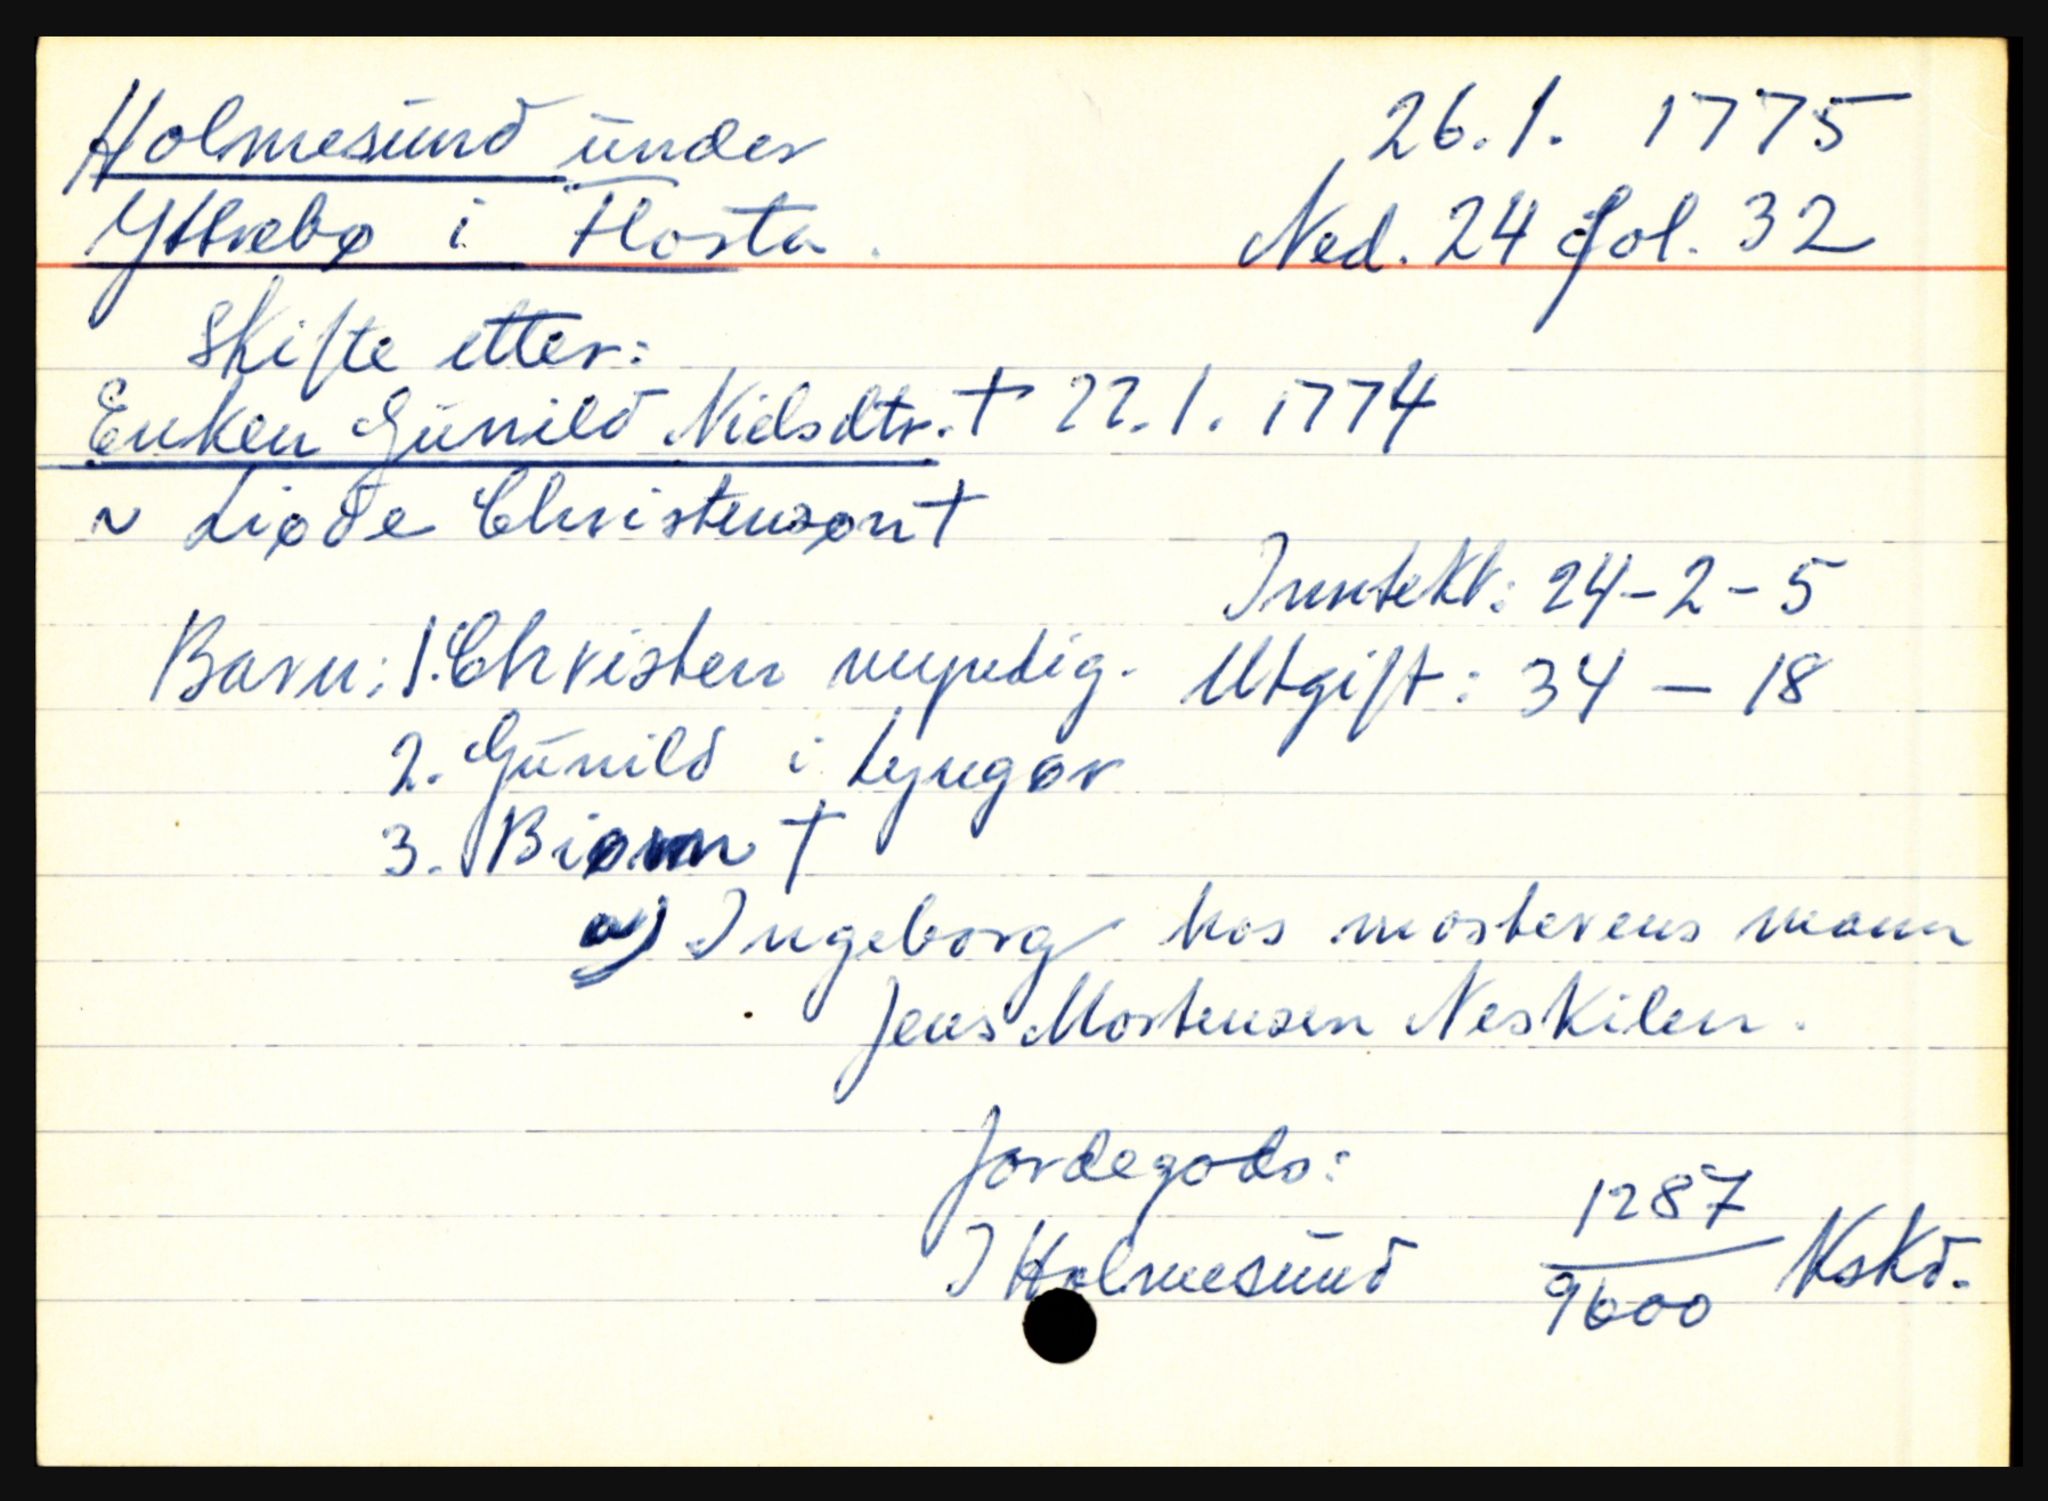 Holmesund under 26.1. 1775
Yttrebø i Flosta. Ned. 24 fol. 32
Skifte etter:
Enken Gunild Nielsdtr. † 22.1. 1774
~ Liøde Christensøn †
Inntekt: 24-2-5
Barn: 1. Christen myndig. Utgift: 34 — 18
2. Gunild i Lyngør
3. Biørn †
a) Ingeborg hos mosterens mann
Jens Mortensen Neskilen.
Jordegods:
I Holmesund 1287/9600 Kskd.